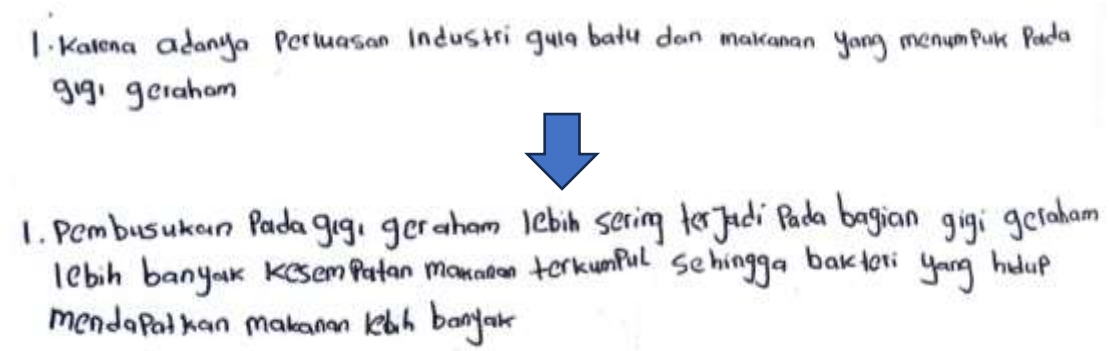 1. Karena adanya Perluasan Industri gula batu dan makanan yang menumpuk Pada
gigi geraham
1. Pembusukan Pada gigi geraham lebih sering terjadi Pada bagian gigi geraham
lebih banyak kesempatan makanan terkumpul sehingga bakteri yang hidup
mendapatkan makanan lebih banyak